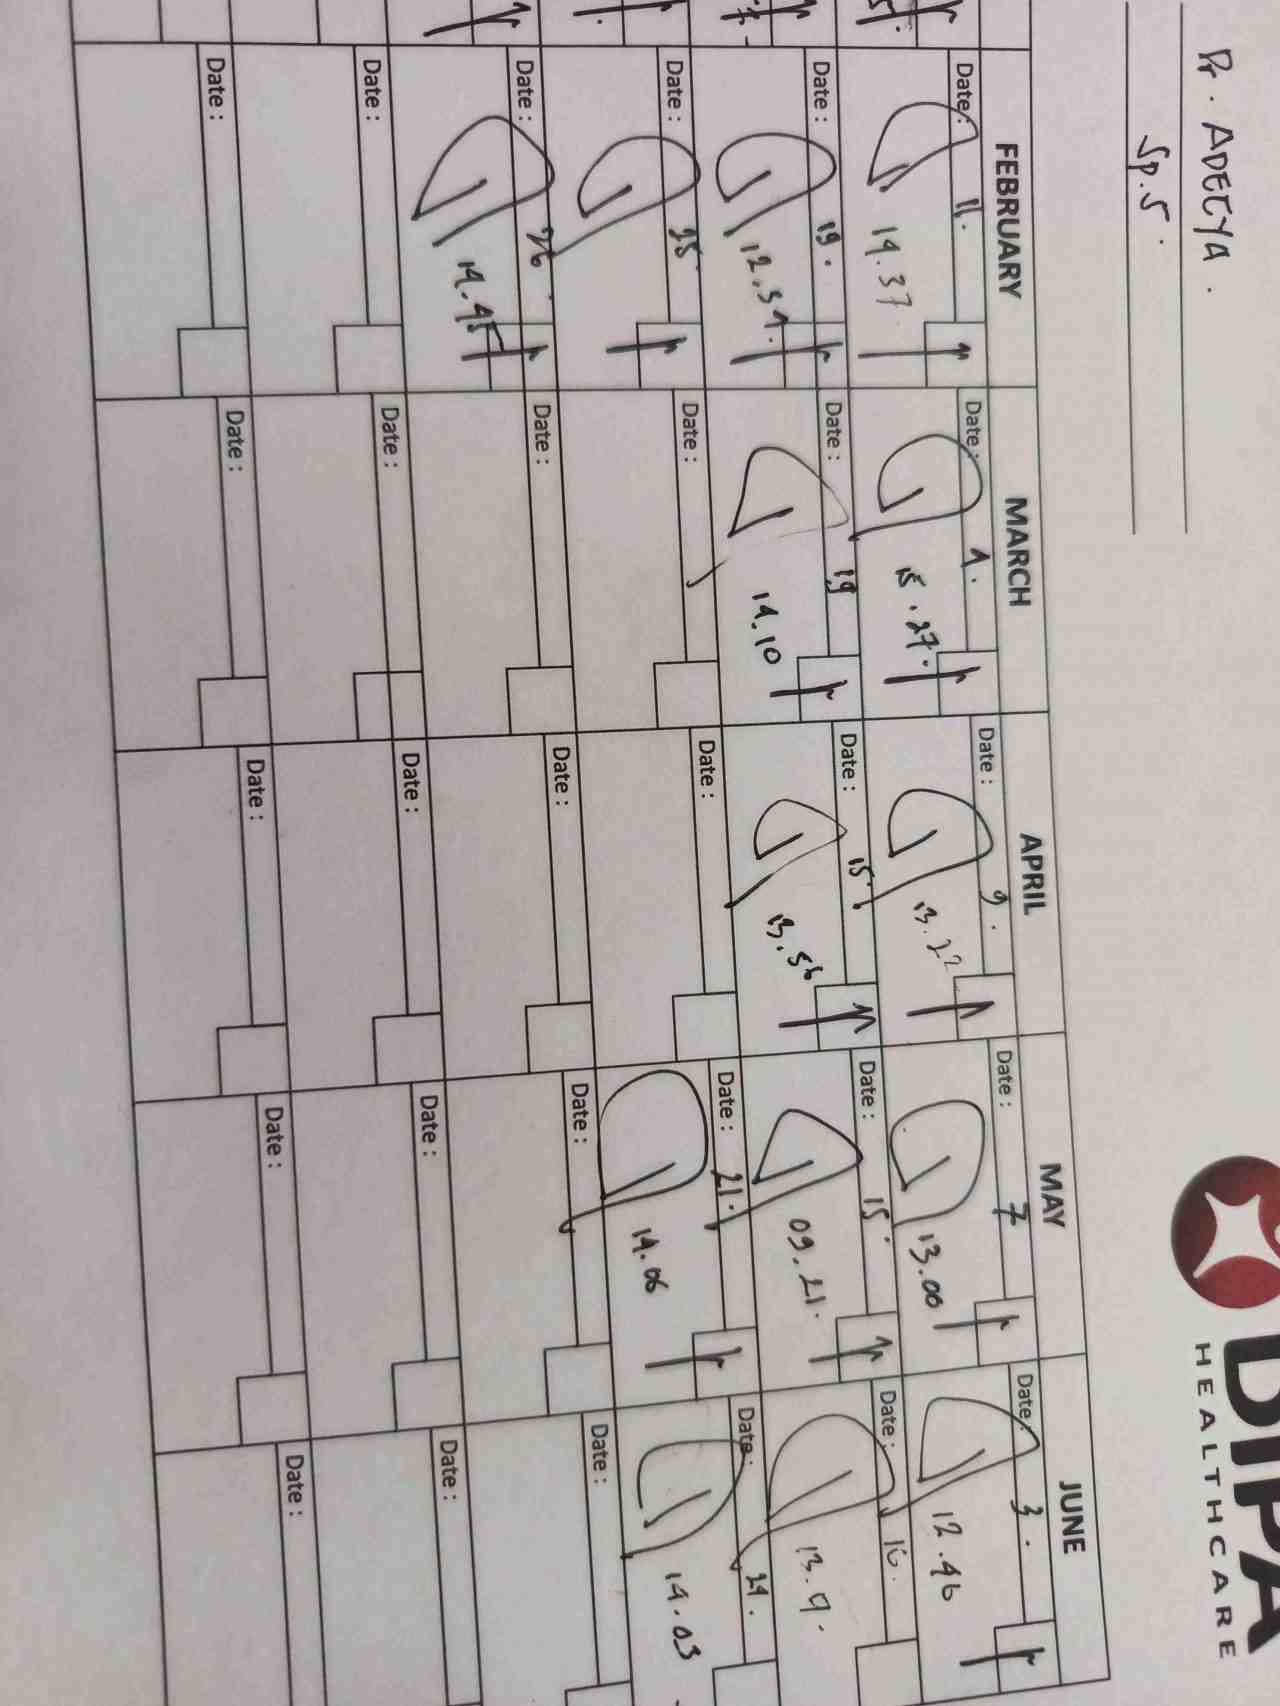 Dr. ADEEYA.
Sp.S.
DIPA
HEALTHCARE
FEBRUARY MARCH APRIL MAY JUNE
Date: 11. Date: 4. Date: 9. Date: 7 Date: 3.
14.37. 15.27. 13.22 13.00 12.46
Date: 19. Date: 19 Date: 15 Date: 15. Date: 16.
12.54. 14.10 13.56 09.21. 13.9.
Date: 25. Date: Date: Date: 21. Date: 24.
14.06 14.03
Date: 26. Date: Date: Date: Date:
14.45
Date: Date: Date: Date: Date:
Date: Date: Date: Date: Date: